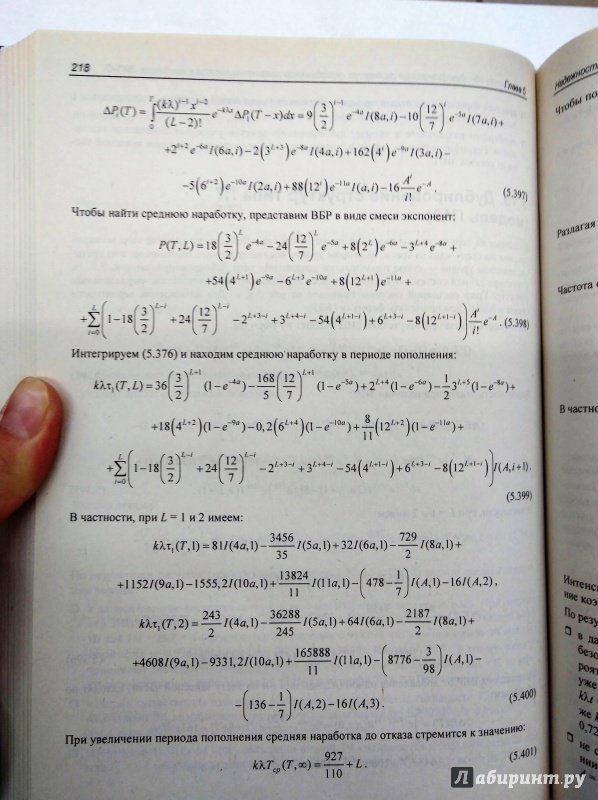 218
Глава 5
ΔPᵢ(T) = ∫₀ᵀ ((kλ)ⁱ⁻¹xⁱ⁻²/(L−2)!) e^(−kλx) ΔPᵢ(T−x)dx = 9(3/2)^(i−1) e^(−4a) I(8a,i) − 10(12/7)^i e^(−5a) I(7a,i) +
+2^(i+2) e^(−6a) I(6a,i) − 2(3^(L+3)) e^(−8a) I(4a,i) + 162(4^i) e^(−9a) I(3a,i) −
−5(6^(i+2)) e^(−10a) I(2a,i) + 88(12^i) e^(−11a) I(a,i) − 16 (A^i/i!) e^(−A). (5.397)
Чтобы найти среднюю наработку, представим ВБР в виде смеси экспонент:
P(T,L) = 18(3/2)^L e^(−4a) − 24(12/7)^L e^(−5a) + 8(2^L) e^(−6a) − 3^(L+4) e^(−8a) +
+54(4^(L+1)) e^(−9a) − 6^(L+3) e^(−10a) + 8(12^(L+1)) e^(−11a) +
+∑_(i=0)^L (1−18(3/2)^(L−i) + 24(12/7)^(L−i) − 2^(L+3−i) + 3^(L+4−i) − 54(4^(L+1−i)) + 6^(L+3−i) − 8(12^(L+1−i))) (A^i/i!) e^(−A). (5.398)
Интегрируем (5.376) и находим среднюю наработку в периоде пополнения:
kλτ₁(T,L) = 36(3/2)^(L+1) (1−e^(−4a)) − (168/5)(12/7)^(L+1) (1−e^(−5a)) + 2^(L+4)(1−e^(−6a)) − (1/2)3^(L+5)(1−e^(−8a)) +
+18(4^(L+2))(1−e^(−9a)) − 0,2(6^(L+4))(1−e^(−10a)) + (8/11)(12^(L+2))(1−e^(−11a)) +
+∑_(i=0)^L (1−18(3/2)^(L−i) + 24(12/7)^(L−i) − 2^(L+3−i) + 3^(L+4−i) − 54(4^(L+1−i)) + 6^(L+3−i) − 8(12^(L+1−i))) I(A,i+1).
(5.399)
В частности, при L = 1 и 2 имеем:
kλτ₁(T,1) = 81I(4a,1) − (3456/35) I(5a,1) + 32I(6a,1) − (729/2) I(8a,1) +
+1152I(9a,1) − 1555,2I(10a,1) + (13824/11) I(11a,1) − (478 − 1/7) I(A,1) − 16I(A,2),
kλτ₁(T,2) = (243/2) I(4a,1) − (36288/245) I(5a,1) + 64I(6a,1) − (2187/2) I(8a,1) +
+4608I(9a,1) − 9331,2I(10a,1) + (165888/11) I(11a,1) − (8776 − 3/98) I(A,1) −
−(136 − 1/7) I(A,2) − 16I(A,3). (5.400)
При увеличении периода пополнения средняя наработка до отказа стремится к значению:
kλT_ср(T,∞) = 927/110 + L. (5.401)
Надежность
Чтобы по
Разлагая
Частота
В частно
Интенс
ние коэ
По резу
в да
безо
роят
уже
kλt
же
0,72
не
нии
Лабиринт.ру